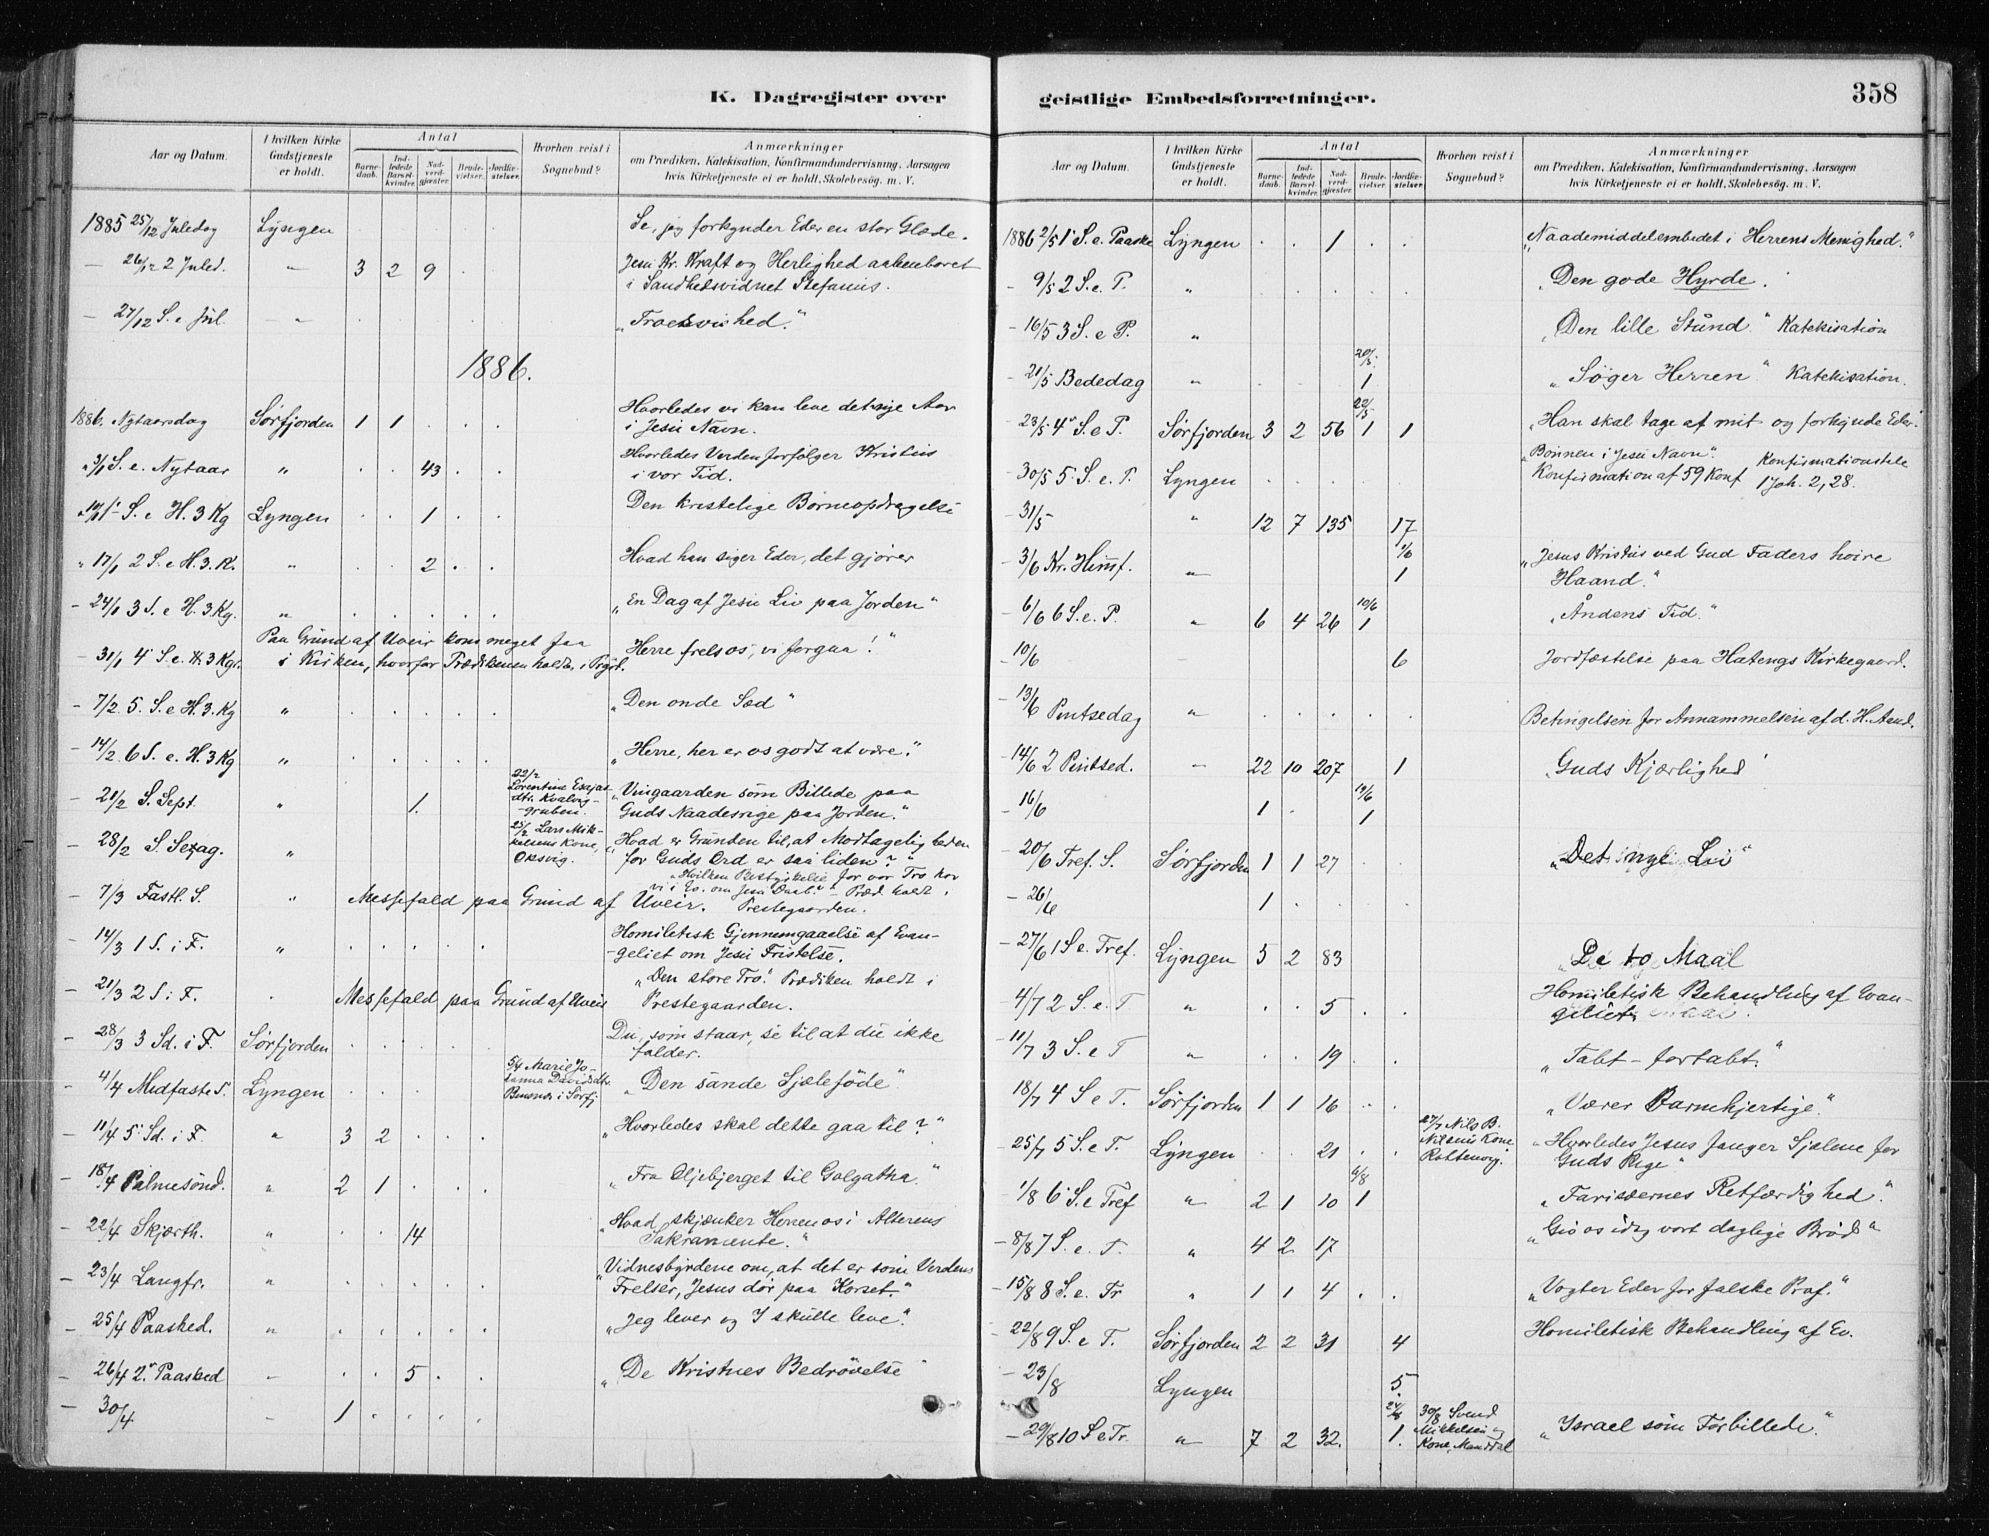 K. Dagregister over
geistlige Embedsforretninger.
358
Aar og Datum.
I hvilken Kirke Gudstjeneste er holdt.
Antal
Barnedaab.
Indledede Barselkvinder.
Nadverdgjæster.
Brudevielser.
Jordfæstelser.
Hvorhen reist i Sognebud?
Anmærkninger
om Prædiken, Katekisation, Konfirmandundervisning, Aarsagen
hvis Kirketjeneste ei er holdt, Skolebesøg. m. V.
1885 25/12 Juledag Lyngen . . . . Se, jeg forkynder Eder en stor Glæde.
- 26/12 2 Juled. " 3 2 9 . . Jesu Kr. Kraft og Herlighed aabenbaret
i Sandhedsvidnet Stefanus.
- 27/12 S. e Jul. " . . . . . "Troesvished."
1886.
1886. Nytaarsdag Sørfjorden 1 1 . . . Hvorledes vi kan leve det nye Aar
i Jesu Navn.
" 3/1 S. e. Nytaar " . . 43 . . Hvorledes Verden forfølger Kristus
i vor Tid.
" 10/1 1 S. e H. 3 Kg Lyngen . . 1 . . Den kristelige Børneopdragelse
" 17/1 2 S. e H. 3. K. " . . 2 . . Hvad han siger Eder, det gjører
- 24/1 3 S. e H. 3 Kg. " . . . . . "En Dag af Jesu Liv paa Jorden"
Paa Grund af Uveir kom meget faa
- 31/1 4 S. e. H. 3 Kg. i Kirken, hvorfor Prædikenen holdt. i Prgd. "Herre frels os, vi forgaa!"
- 7/2. 5. S. e H. 3. Kg " . . . . . "Den onde Sæd"
- 14/2. 6 S. e. H. 3 Kg " . . . . . "Herre, her er os godt at være."
- 21/2 S. Sept. " . 1. 22/2 Lorentine Esajas-
dtr. Kvalvig-
gruben. "Vingaarden som Billede paa
Guds Naadesrige paa Jorden."
- 28/2 S. Sexag. " 25/2 Lars Mik-
kelsens Kone,
Oksvig. "Hvad er Grunden til, at Modtageligheden
for Guds Ord er saa liden?"
- 7/3 Fastl. S. " Messefald paa Grund af Uveir. "Hvilken Bestyrkelse for vor Tro har
vi i Ev. om Jesu Daab?" - Præd. holdt i
Prestegaarden.
- 14/3 1 S. i F. " . . . . . Homiletisk Gjennemgaaelse af Evan-
-geliet om Jesu Fristelse.
- 21/3 2 S. i F. . Messefald paa Grund af Uveir "Den store Tro". Prædiken holdt i
Prestegaarden.
- 28/3 3 Sd. i F. Sørfjorden . . . . . Du, som staar, se til at du ikke
falder.
- 4/4 Midfaste S. Lyngen . . . 5/4 Marie Jo-
hanna Davidsdtr. "Den sande Sjæleføde"
- 11/4 5 Sd. i F. " 3 2 . . . "Hvorledes skal dette gaa til?"
- 18/4 Palmesønd. " 2 1 . . . "Fra Oljebjerget til Golgatha."
- 22/4 Skjærth. " . . 14 "Hvad skjænker Herren os i Alterens
Sakramente."
- 23/4 Langfr. " . . . . . "Vidnesbyrdene om, at det er som Verdens
Frelser, Jesus dør paa Korset."
- 25/4 Paasked. " . . . . . "Jeg lever og I skulle leve."
- 26/4 2. Paasked - . . 5 . . "De Kristnes Bedrøvelse"
- 30/4 - 1 . . . .
Aar og Datum.
I hvilken Kirke Gudstjeneste er holdt.
Antal
Barnedaab.
Indledede Barselkvinder.
Nadverdgjæster.
Brudevielser.
Jordfæstelser.
Hvorhen reist i Sognebud?
Anmærkninger
om Prædiken, Katekisation, Konfirmandundervisning, Aarsagen
hvis Kirketjeneste ei er holdt, Skolebesøg. m. V.
1886 2/5 1 S. e. Paaske Lyngen . . 1 . . "Naademiddelembedet i Herrens Menighed."
- 9/5 2 S. e. P. " . . . . . "Den gode Hyrde.
- 16/5 3 S. e P. " "Den lille Stund" Katekisation
- 21/5 Bededag " . . . 20/5. 1 "Søger Herren" Katekisation.
- 23/5 4 S. e P. Sørfjorden 3 2 56 22/5 1 1 "Han skal tage af mit og forkynde Eder.
- 30/5 5 S. e. P. Lyngen . . . . . "Bønnen i Jesu Navn".
Konfirmation af 59 Konf Konfirmationstale
1 Joh. 2, 28.
31/5 " 12 7 135 17
- 3/6 Kr. Himf. " 1/6 1 "Jesus Kristus ved Gud Faders høire
Haand."
- 6/6 6 S. e. P. " 6 4 26 10/6 1 "Åndens Tid."
- 10/6 - 6 Jordfæstelse paa Hatengs Kirkegaard.
- 13/6 Pintsedag " . . . . . Betingelsen for Annammelsen af d. H. Aand.
- 14/6 2 Pintsed. - 22 10 207 1 "Guds Kjærlighed"
- 16/6 1 . . 19/6 1
- 20/6 Tref. S. Sørfjorden 1 1 27 . . "Det nye Liv"
- 26/6 1 . . . .
- 27/6 1 S e. Tref. Lyngen 5 2 83 "De to Maal
- 4/7 2 S. e. T " . . 5 . . Homiletisk Behandling af Evan-
geliet.
- 11/7 3 S. e T " . . 19 . . "Tabt - fortabt."
- 18/7 4 S e T. Sørfjorden 1 1 16 . . "Værer Barmhjertige."
- 25/7 5 S. e T. Lyngen . . 21 . . 27/7 Nils B.
Nilsens Kone "Hvorledes Jesus fanger Sjælene for
Guds Rige"
- 1/8 6 S. e Tref " 2 1 10 6/8 1 "Farisæernes Retfærdighed."
- 8/8 7 S. e. T. " 4 2 17 "Giv os idag vort daglige Brød"
- 15/8 8 S. e. Tr " 1 1 4 . . "Vogter Eder for falske Prof."
- 22/8 9 S. e T. Sørfjorden 2 2 31 4 Homiletisk Behandling af Ev.
- 23/8 Lyngen 5
- 29/8 10 S e Tr. " 7 2 32. 24/8 1. 30/8 Svend
Mikkelsen og
Kone, Manddal "Israel som Forbillede."